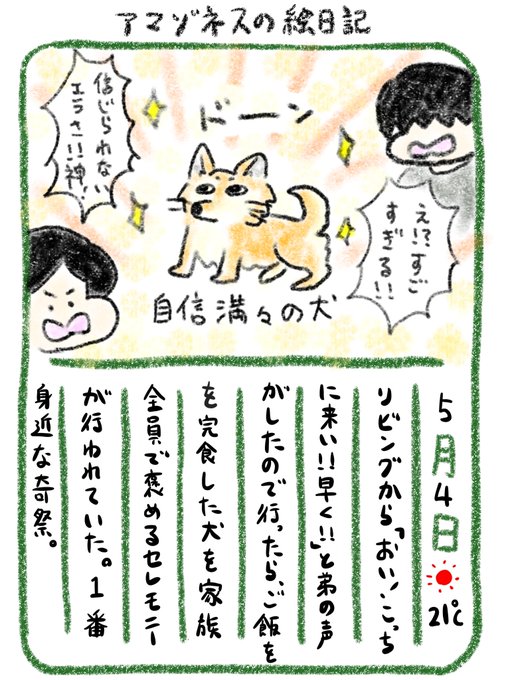 アマゾネスの絵日記
え!?すご
すぎる!!
ドーン
信じられない
エラさ!!神!
自信満々の犬
5月4日
21℃
リビングから「おい!こっち
に来い!!早く!!」と弟の声
がしたので行ったら、ご飯を
を完食した犬を家族
全員で褒めるセレモニー
が行われていた。1番
身近な奇祭。